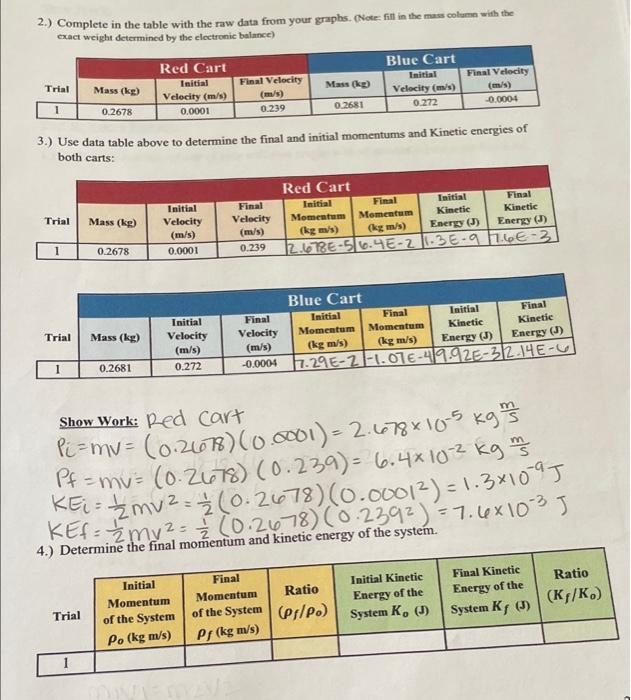 2.) Complete in the table with the raw data from your graphs. (Note: fill in the mass column with the
exact weight determined by the electronic balance)
Red Cart Blue Cart
Trial Mass (kg) Initial Velocity (m/s) Final Velocity (m/s) Mass (kg) Initial Velocity (m/s) Final Velocity (m/s)
1 0.2678 0.0001 0.239 0.2681 0.272 -0.0004
3.) Use data table above to determine the final and initial momentums and Kinetic energies of
both carts:
Red Cart
Trial Mass (kg) Initial Velocity (m/s) Final Velocity (m/s) Initial Momentum (kg m/s) Final Momentum (kg m/s) Initial Kinetic Energy (J) Final Kinetic Energy (J)
1 0.2678 0.0001 0.239 2.678E-5 6.4E-2 1.3E-9 7.6E-3
Blue Cart
Trial Mass (kg) Initial Velocity (m/s) Final Velocity (m/s) Initial Momentum (kg m/s) Final Momentum (kg m/s) Initial Kinetic Energy (J) Final Kinetic Energy (J)
1 0.2681 0.272 -0.0004 7.29E-2 -1.07E-4 9.92E-3 2.14E-6
Show Work: Red Cart
Pi=mv= (0.2678)(0.0001) = 2.678×10⁻⁵ kg m/s
Pf=mv= (0.2678)(0.239)= 6.4×10⁻² kg m/s
KEi= ½mv²=½(0.2678)(0.0001²)=1.3×10⁻⁹J
KEf=½mv²=½(0.2678)(0.239²)=7.6×10⁻³ J
4.) Determine the final momentum and kinetic energy of the system.
Trial Initial Momentum of the System ρₒ (kg m/s) Final Momentum of the System ρf (kg m/s) Ratio (ρf/ρₒ) Initial Kinetic Energy of the System Kₒ (J) Final Kinetic Energy of the System Kf (J) Ratio (Kf/Kₒ)
1